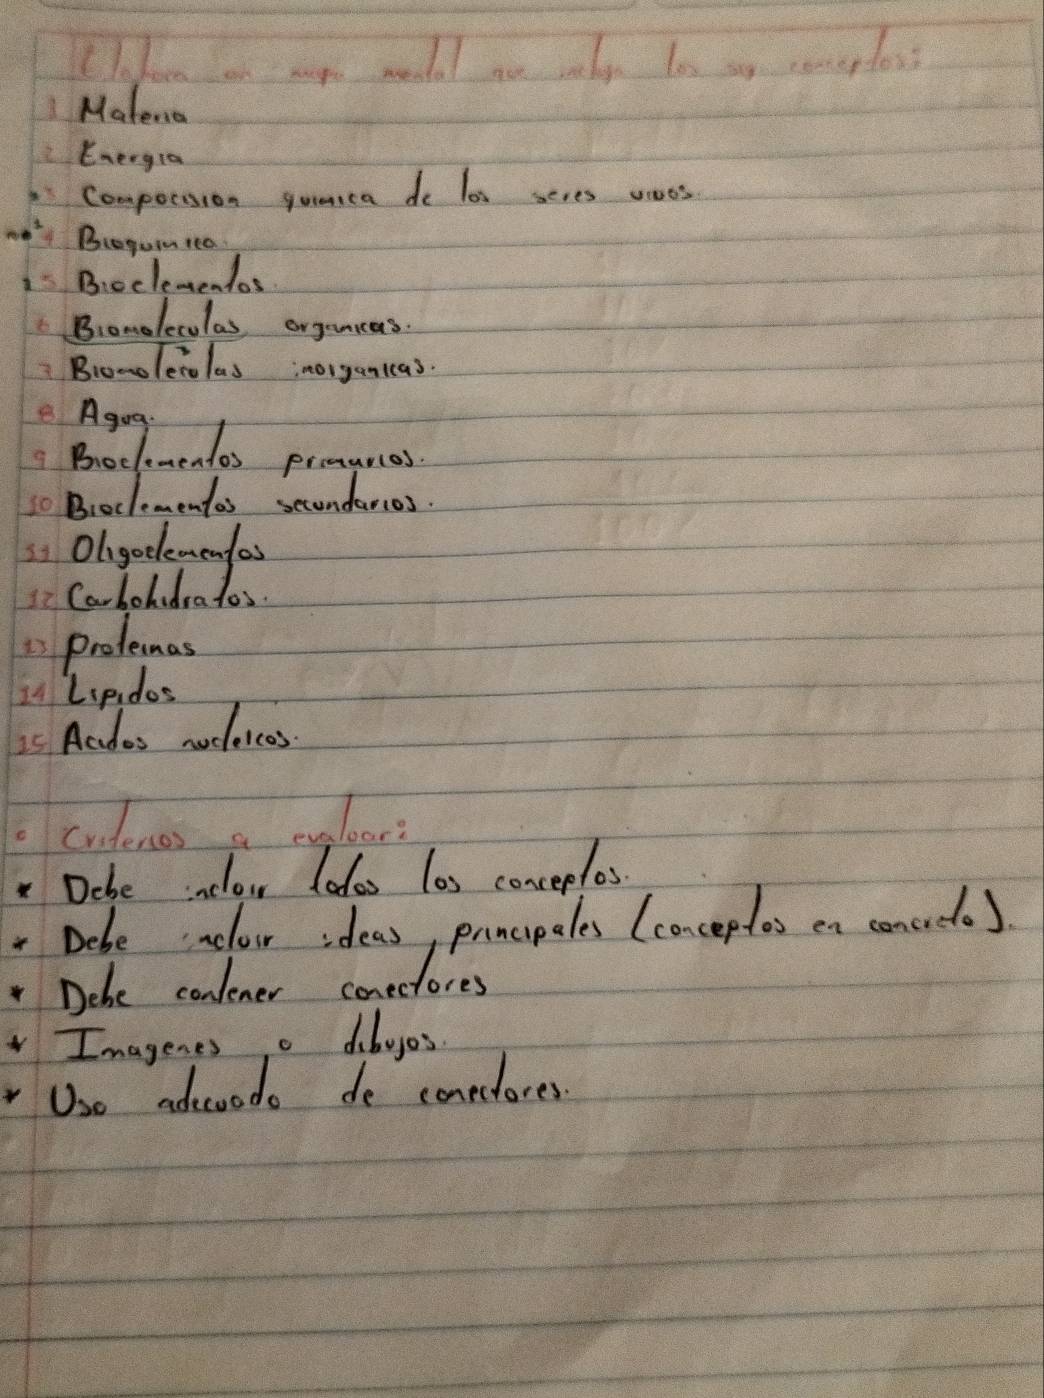 Elabora un mapa mental que incluya los sig conceptos:
1 Materia
2 Energia
3 Compocision quimica de los seres vivos.
4 Bioquimica.
5 Bioelementos.
6 Biomoleculas organicas.
7 Biomoleculas inorganicas.
8 Agua.
9 Bioelementos primarios.
10 Bioelementos secundarios.
11 Oligoelementos
12 Carbohidratos.
13 proteinas
14 Lipidos
15 Acidos nucleicos.
° Criterios a evaluar:
* Debe incluir todos los conceptos.
* Debe incluir ideas, principales (conceptos en concreto).
* Debe contener conectores
* Imagenes o dibujos.
* Uso adecuado de conectores.